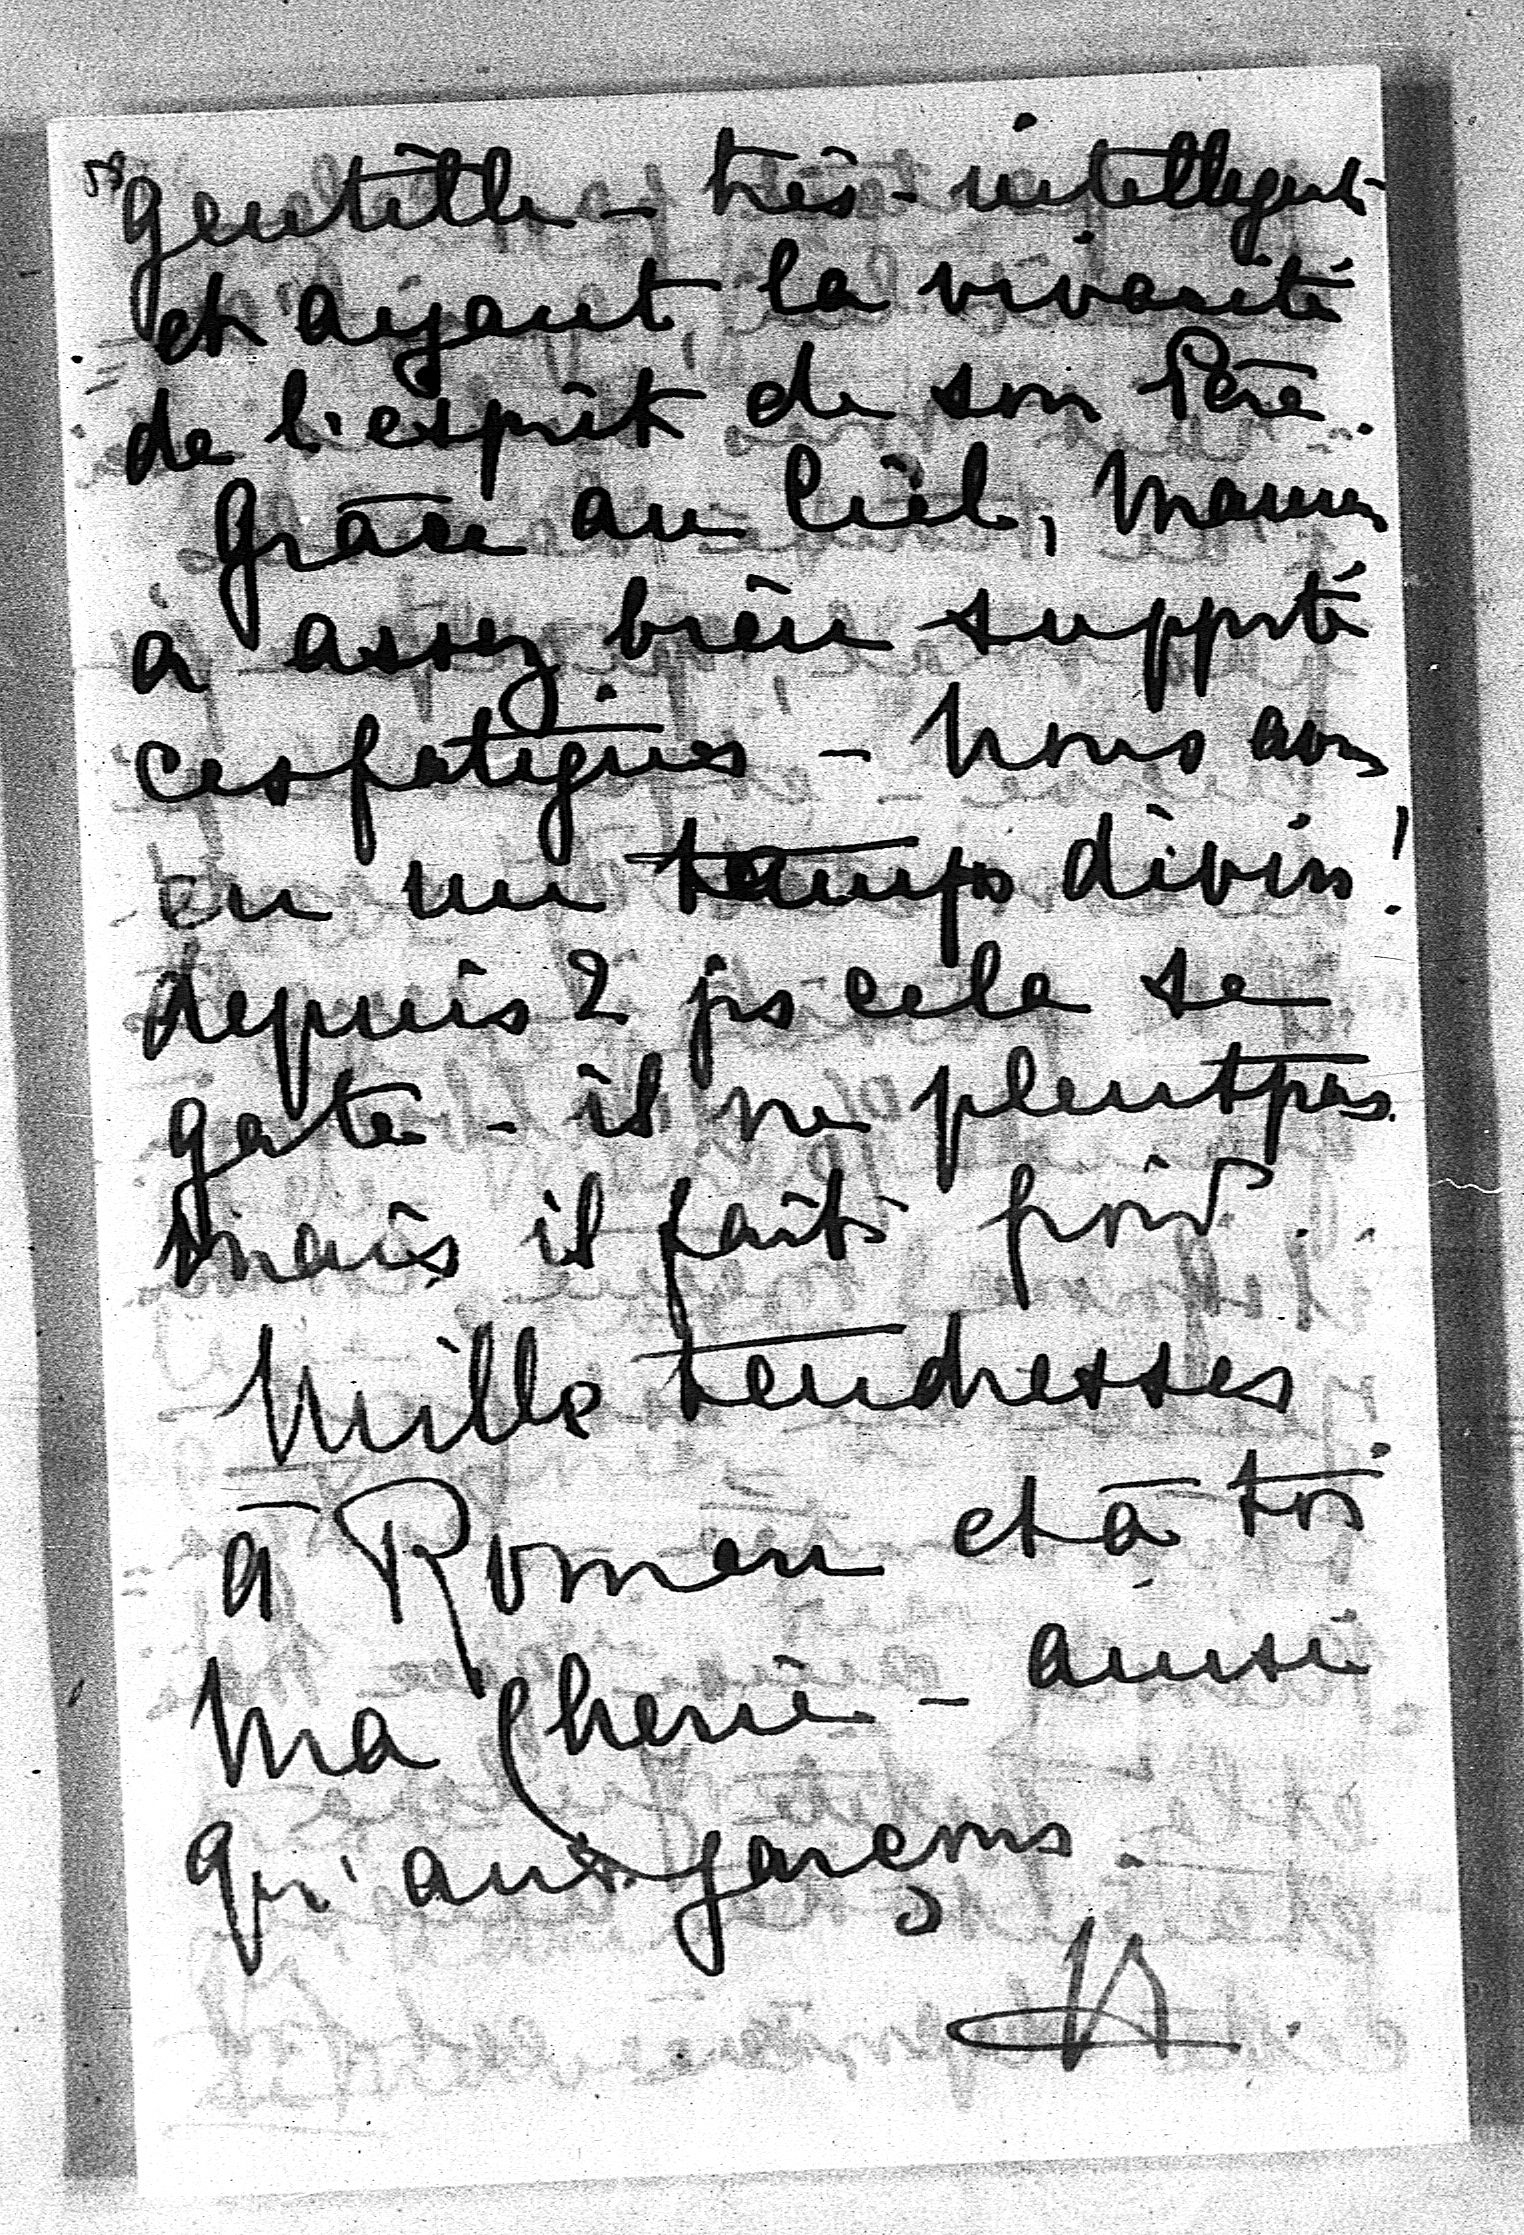 58
gentille - très - intelligent
et ayant la vivacité
de l'esprit de son Père.
Grâce au Ciel, Maman
a assez bien supporté
ces fatigues - Nous avons
eu un temps divin!
depuis 2 jrs cela se
gate - il ne pleut pas
mais il fait froid.
Mille tendresses
à Romeu et à toi
Ma Cherie - ainsi
qu'aux garçons.